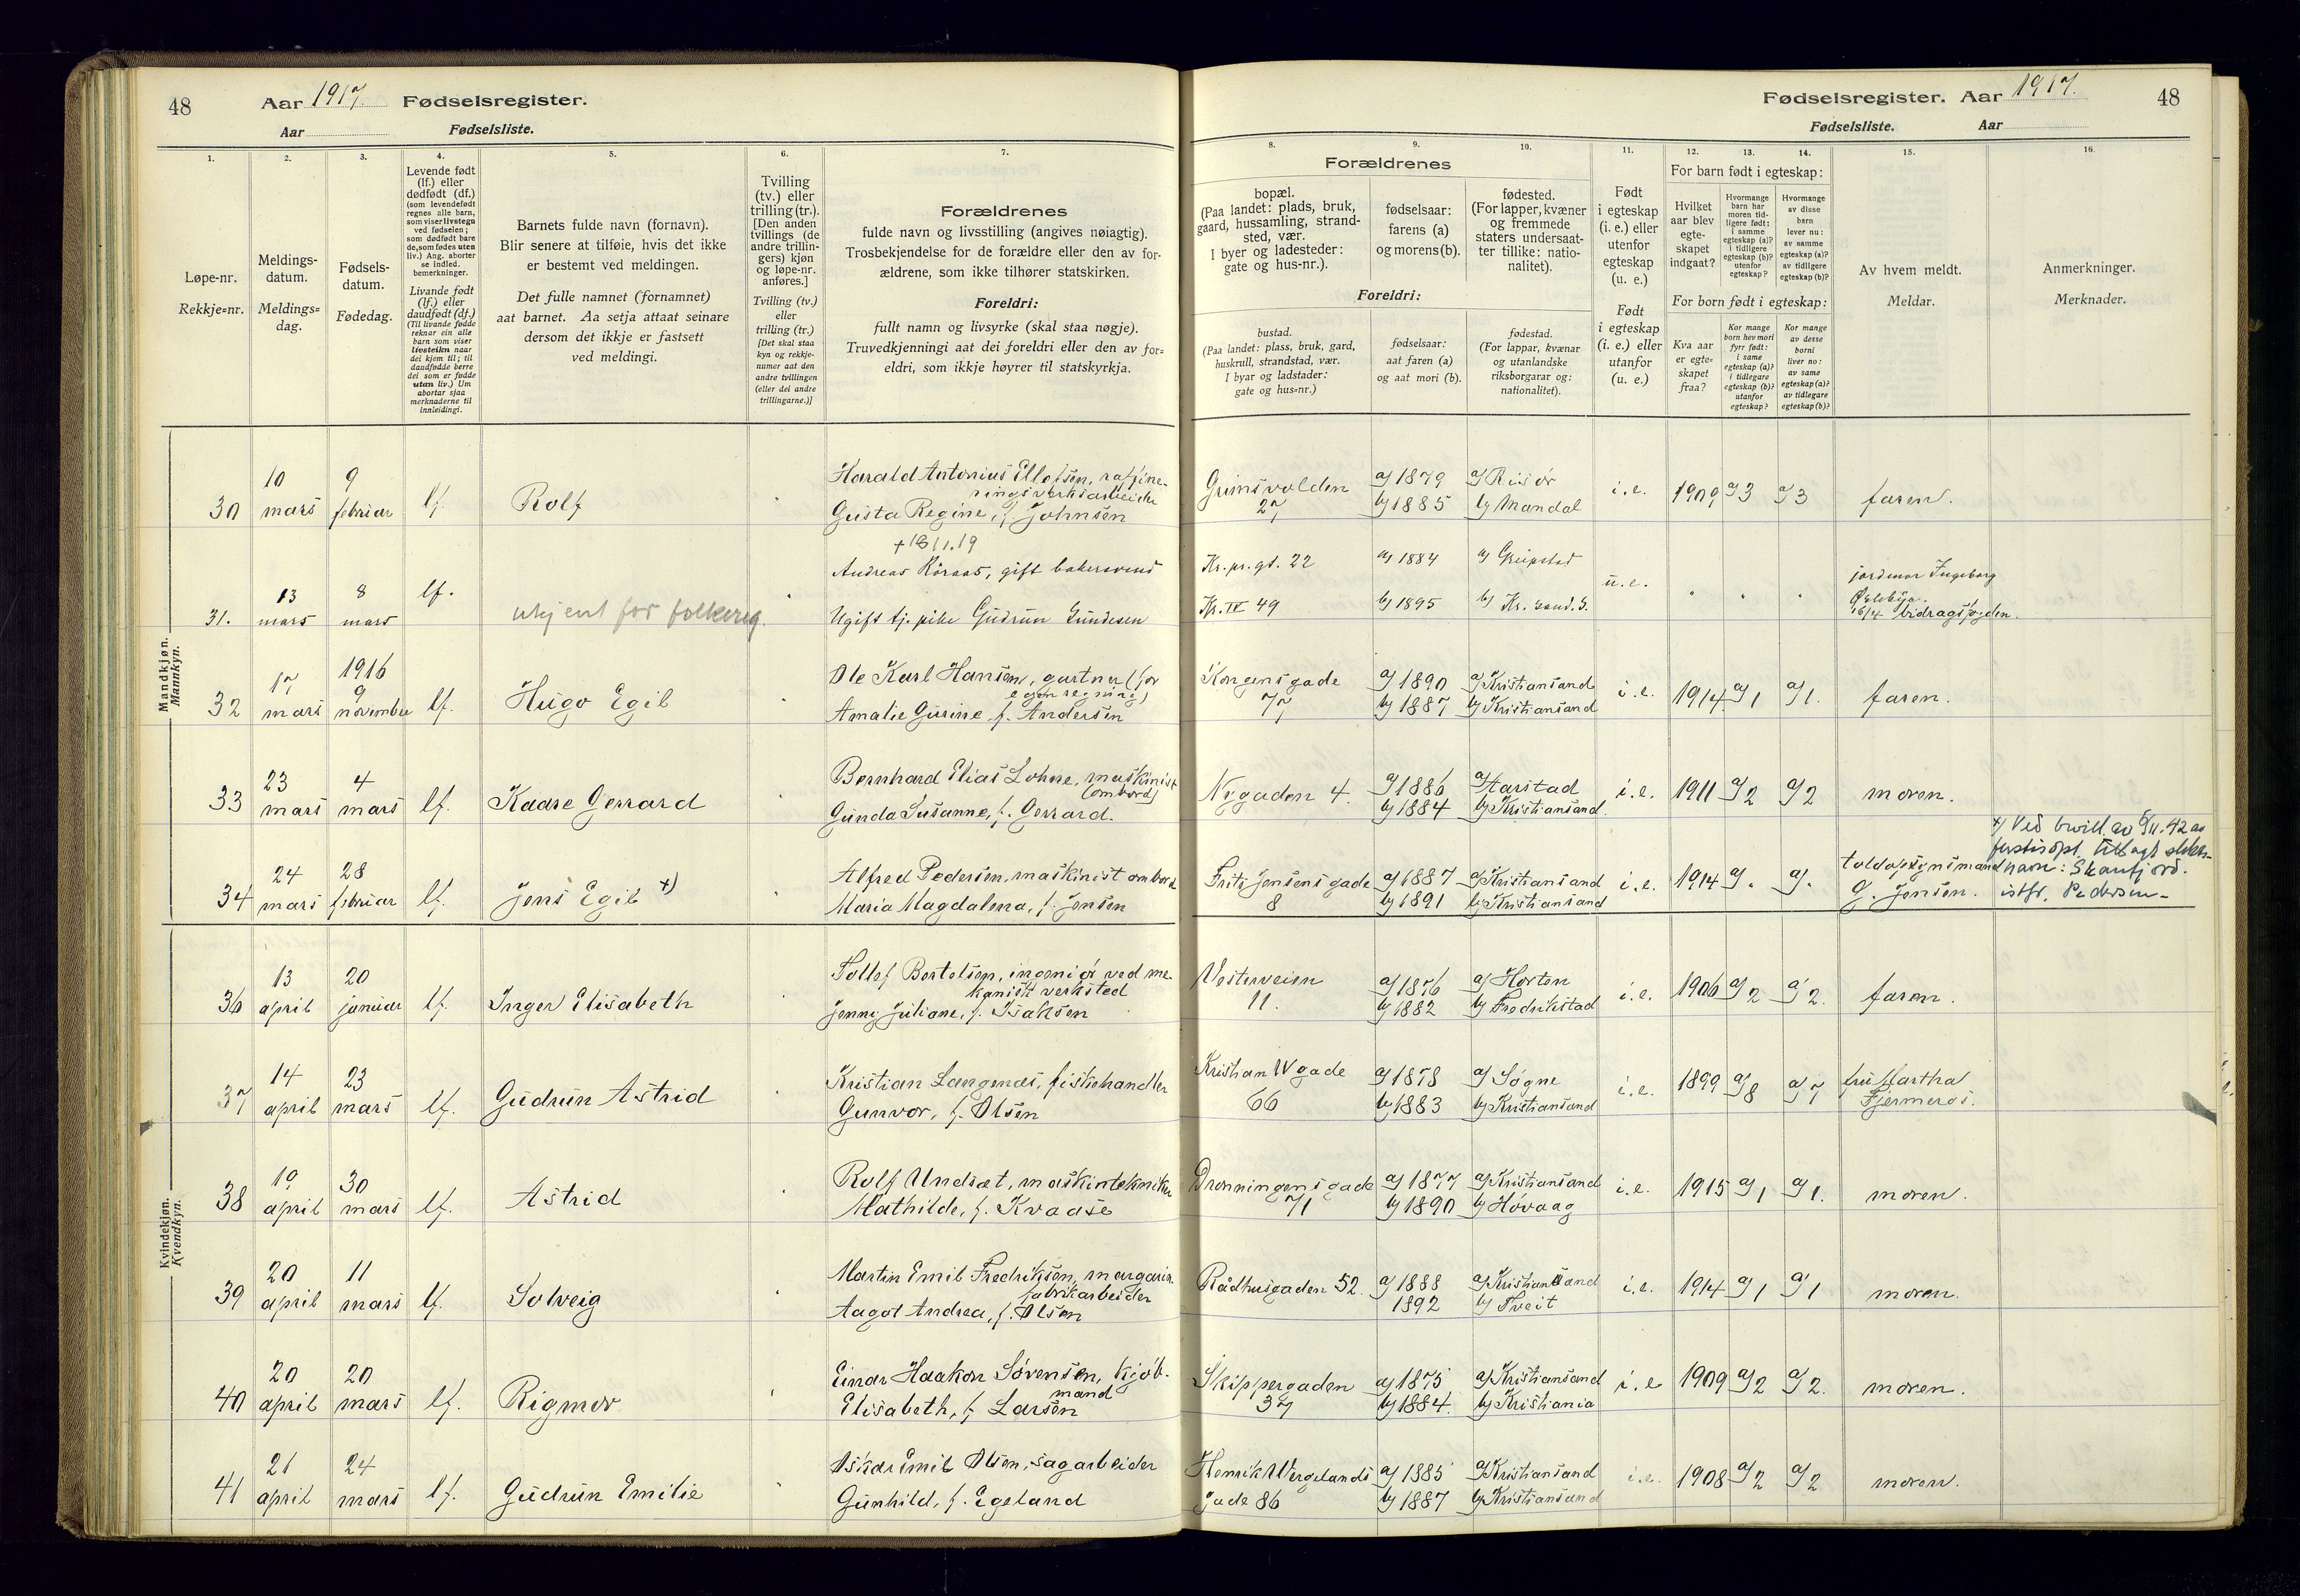 48
Aar 1917. Fødselsregister.
Aar
Fødselsliste.
1.
2.
3.
4.
5.
6.
7.
Løpe-nr.
Rekkje=nr.
Meldings-
datum.
Meldings=
dag.
Fødsels-
datum.
Fødedag.
Levende født
(lf.) eller
dødfødt (df.)
(som levendefødt
regnes alle barn,
som viser livstegn
ved fødselen;
som dødfødt bare
de, som fødes uten
liv.) Ang. aborter
se indled.
bemerkninger.
Livande født
(lf.) eller
daudfødt (df.)
(Til livande fødde
reknar ein alle
barn som viser
livsteikn naar
dei kjem til; til
daudfødde berre
dei som er fødde
utan liv.) Um
abortar sjaa
merknaderne til
innleidingi.
Barnets fulde navn (fornavn).
Blir senere at tilføie, hvis det ikke
er bestemt ved meldingen.
Det fulle namnet (fornamnet)
aat barnet. Aa setja attaat seinare
dersom det ikkje er fastsett
ved meldingi.
Tvilling
(tv.) eller
trilling (tr.).
[Den anden
tvillings (de
andre trillin-
gers) kjøn
og løpe-nr.
anføres.]
Tvilling (tv.)
eller
trilling (tr.)
[Det skal staa
kyn og rekkje-
numer aat den
andre tvillingen
(eller dei andre
trillingarne.)]
Forældrenes
fulde navn og livsstilling (angives nøiagtig).
Trosbekjendelse for de forældre eller den av for-
ældrene, som ikke tilhører statskirken.
Foreldri:
fullt namn og livsyrke (skal staa nøgje).
Truvedkjenningi aat dei foreldri eller den av for=
eldri, som ikkje høyrer til statskyrkja.
Mandkjøn.
Mannkyn.
30
10
mars
9
februar
lf.
Rolf
Harald Antonius Ellefsen, raffine-
ringsverksarbeider
Gusta Regine, f. Johnsen
31.
13
mars
8
mars
lf.
ukjent for folkereg.
+ 18 11.19
Andreas Röraas, gift bakersvend
Ugift tj. pike Gudrun Gundesen
32
17
mars
1916
9
november
lf.
Hugo Egil
Ole Karl Hansen, gartner (for
egen regning)
Amalie Gurine f. Andersen
33
23
mars
4
mars
lf.
Kaare Gerrard
Bernhard Elias Lohne, maskinist
(ombord)
Gunda Susanne, f. Gerrard.
34
24
mars
28
februar
lf.
Jens Egil +)
Alfred Pedersen, maskinist ombord
Maria Magdalena, f. Jensen
Kvindekjøn.
Kvendkyn.
36
13
april
20
januar
lf.
Inger Elisabeth
Tollef Bertelsen, ingeniør ved me-
kanisk verksted
Jenny Juliane, f. Isaksen
37
14
april
23
mars
lf.
Gudrun Astrid
Kristian Langenes, fiskehandler
Gunvor, f. Olsen
38
19
april
30
mars
lf.
Astrid
Rolf Undsæt, maskintekniker
Mathilde, f. Kvaase
39
20
april
11
mars
lf.
Solveig
Martin Emil Fredriksen, margarin-
fabrikarbeider
Aagot Andrea, f. Olsen
40
20
april
20
mars
lf.
Rigmor
Einar Haakon Sørensen, kjøb-
mand
Elisabeth, f. Larsen
41
21
april
24
mars
lf.
Gudrun Emilie
Oskar Emil Olsen, sagarbeider
Gunhild, f. Egeland
Fødselsregister. Aar 1917.
48
Fødselsliste.
Aar
8.
9.
10.
11.
12.
13.
14.
15.
16.
Forældrenes
bopæl.
(Paa landet: plads, bruk,
gaard, hussamling, strand-
sted, vær.
I byer og ladesteder:
gate og hus-nr.).
fødselsaar:
farens (a)
og morens (b).
fødested.
(For lapper, kvæner
og fremmede
staters undersaat-
ter tillike: natio-
nalitet).
Foreldri:
bustad.
(Paa landet: plass, bruk, gard,
huskrull, strandstad, vær.
I byar og ladstader:
gate og hus=nr.)
fødselsaar:
aat faren (a)
og aat mori (b).
fødestad.
(For lappar, kvænar
og utanlandske
riksborgarar og:
nationalitet).
Født
i egteskap
(i. e.) eller
utenfor
egteskap
(u. e.)
Født
i egteskap
(i. e.) eller
utanfor
(u. e.)
For barn født i egteskap:
Hvilket
aar blev
egte-
skapet
indgaat?
Hvormange
barn har
moren tid-
ligere født:
i samme
egteskap (a)?
i tidligere
egteskap (b)?
utenfor
egteskap?
Hvormange
av disse
barn
lever nu:
av samme
egteskap (a)?
av tidligere
egteskap (b)?
For born født i egteskap:
Kva aar
er egte=
skapet
fraa?
Kor mange
born hev mori
fyrr født:
i same
egteskap (a)?
i tidlegare
egteskap (b)?
utanfor
egteskap?
Kor mange
av desse
borni
liver no:
av same
egteskap (a)?
av tidlegare
egteskap (b)?
Av hvem meldt.
Meldar.
Anmerkninger.
Merknader.
Grimsvolden
27
a) 1879
b) 1885
a) Risør
b) Mandal
i. e.
1909
a) 3
a) 3
faren.
Kr. pr. gt. 22
Kr. IV 49
a) 1884
b) 1895
a) Greipstad
b) Kr. sand. S.
u. e.
jordmor Ingeborg
16/4 bidragsfogden.
Kongensgade
77
a) 1890
b) 1887
a) Kristiansand
b) Kristiansand
i. e.
1914
a) 1
a) 1.
faren.
Nygaden 4.
a) 1886
b) 1884
a) Harstad
b) Kristiansand.
i. e.
1911
a) 2
a) 2
moren.
Fritz Jensens gade
8
a) 1887
b) 1891
a) Kristiansand
b) Kristiansand
i. e.
1914
a) .
a) .
toldopsynsmand
G. Jensen.
+) Ved bevill. av 9/11.42 av
justisdpt. tillagt slekts-
navn: Skaufjord.
istf. Pedersen-
Vesterveien
11.
a) 1876
b) 1882
a) Horten
b) Fredrikstad
i. e.
1906
a) 2
a) 2.
faren.
Kristian IV gade
66
a) 1878
b) 1883
a) Søgne
b) Kristiansand
i. e.
1899
a) 8
a) 7
fru Martha
Fjermeros.
Dronningensgade
71
a) 1877
b) 1890
a) Kristiansand
b) Høvaag
i. e.
1915
a) 1
a) 1.
moren.
Rådhusgaden 52.
a) 1888
1892
a) Kristiansand
b) Tveit
i. e.
1914
a) 1
a) 1
moren.
Skippergaden
37
a) 1875
b) 1884.
a) Kristiansand
b) Kristiania
i. e
1909
a) 2
a) 2.
moren.
Henrik Wergelands
gade 86
a) 1885
b) 1887
a) Kristiansand
b) Kristiansand
i. e.
1908
a) 2
a) 2
moren.